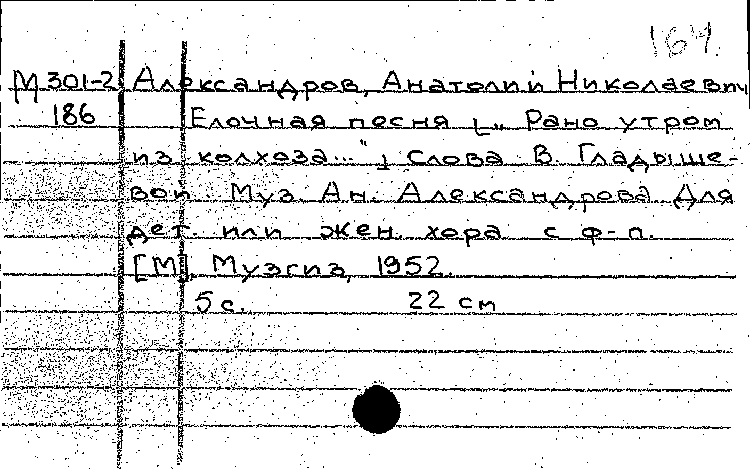 164.
М 301-2 Александров, Анатолий Николаевич
186 Елочная песня [„Рано утром
из колхоза..."] Слова В. Гладыше-
вой Муз. Ан. Александрова. Для
дет. или жен. хора с ф-п.
[М], Музгиз, 1952.
5 с. 22 см